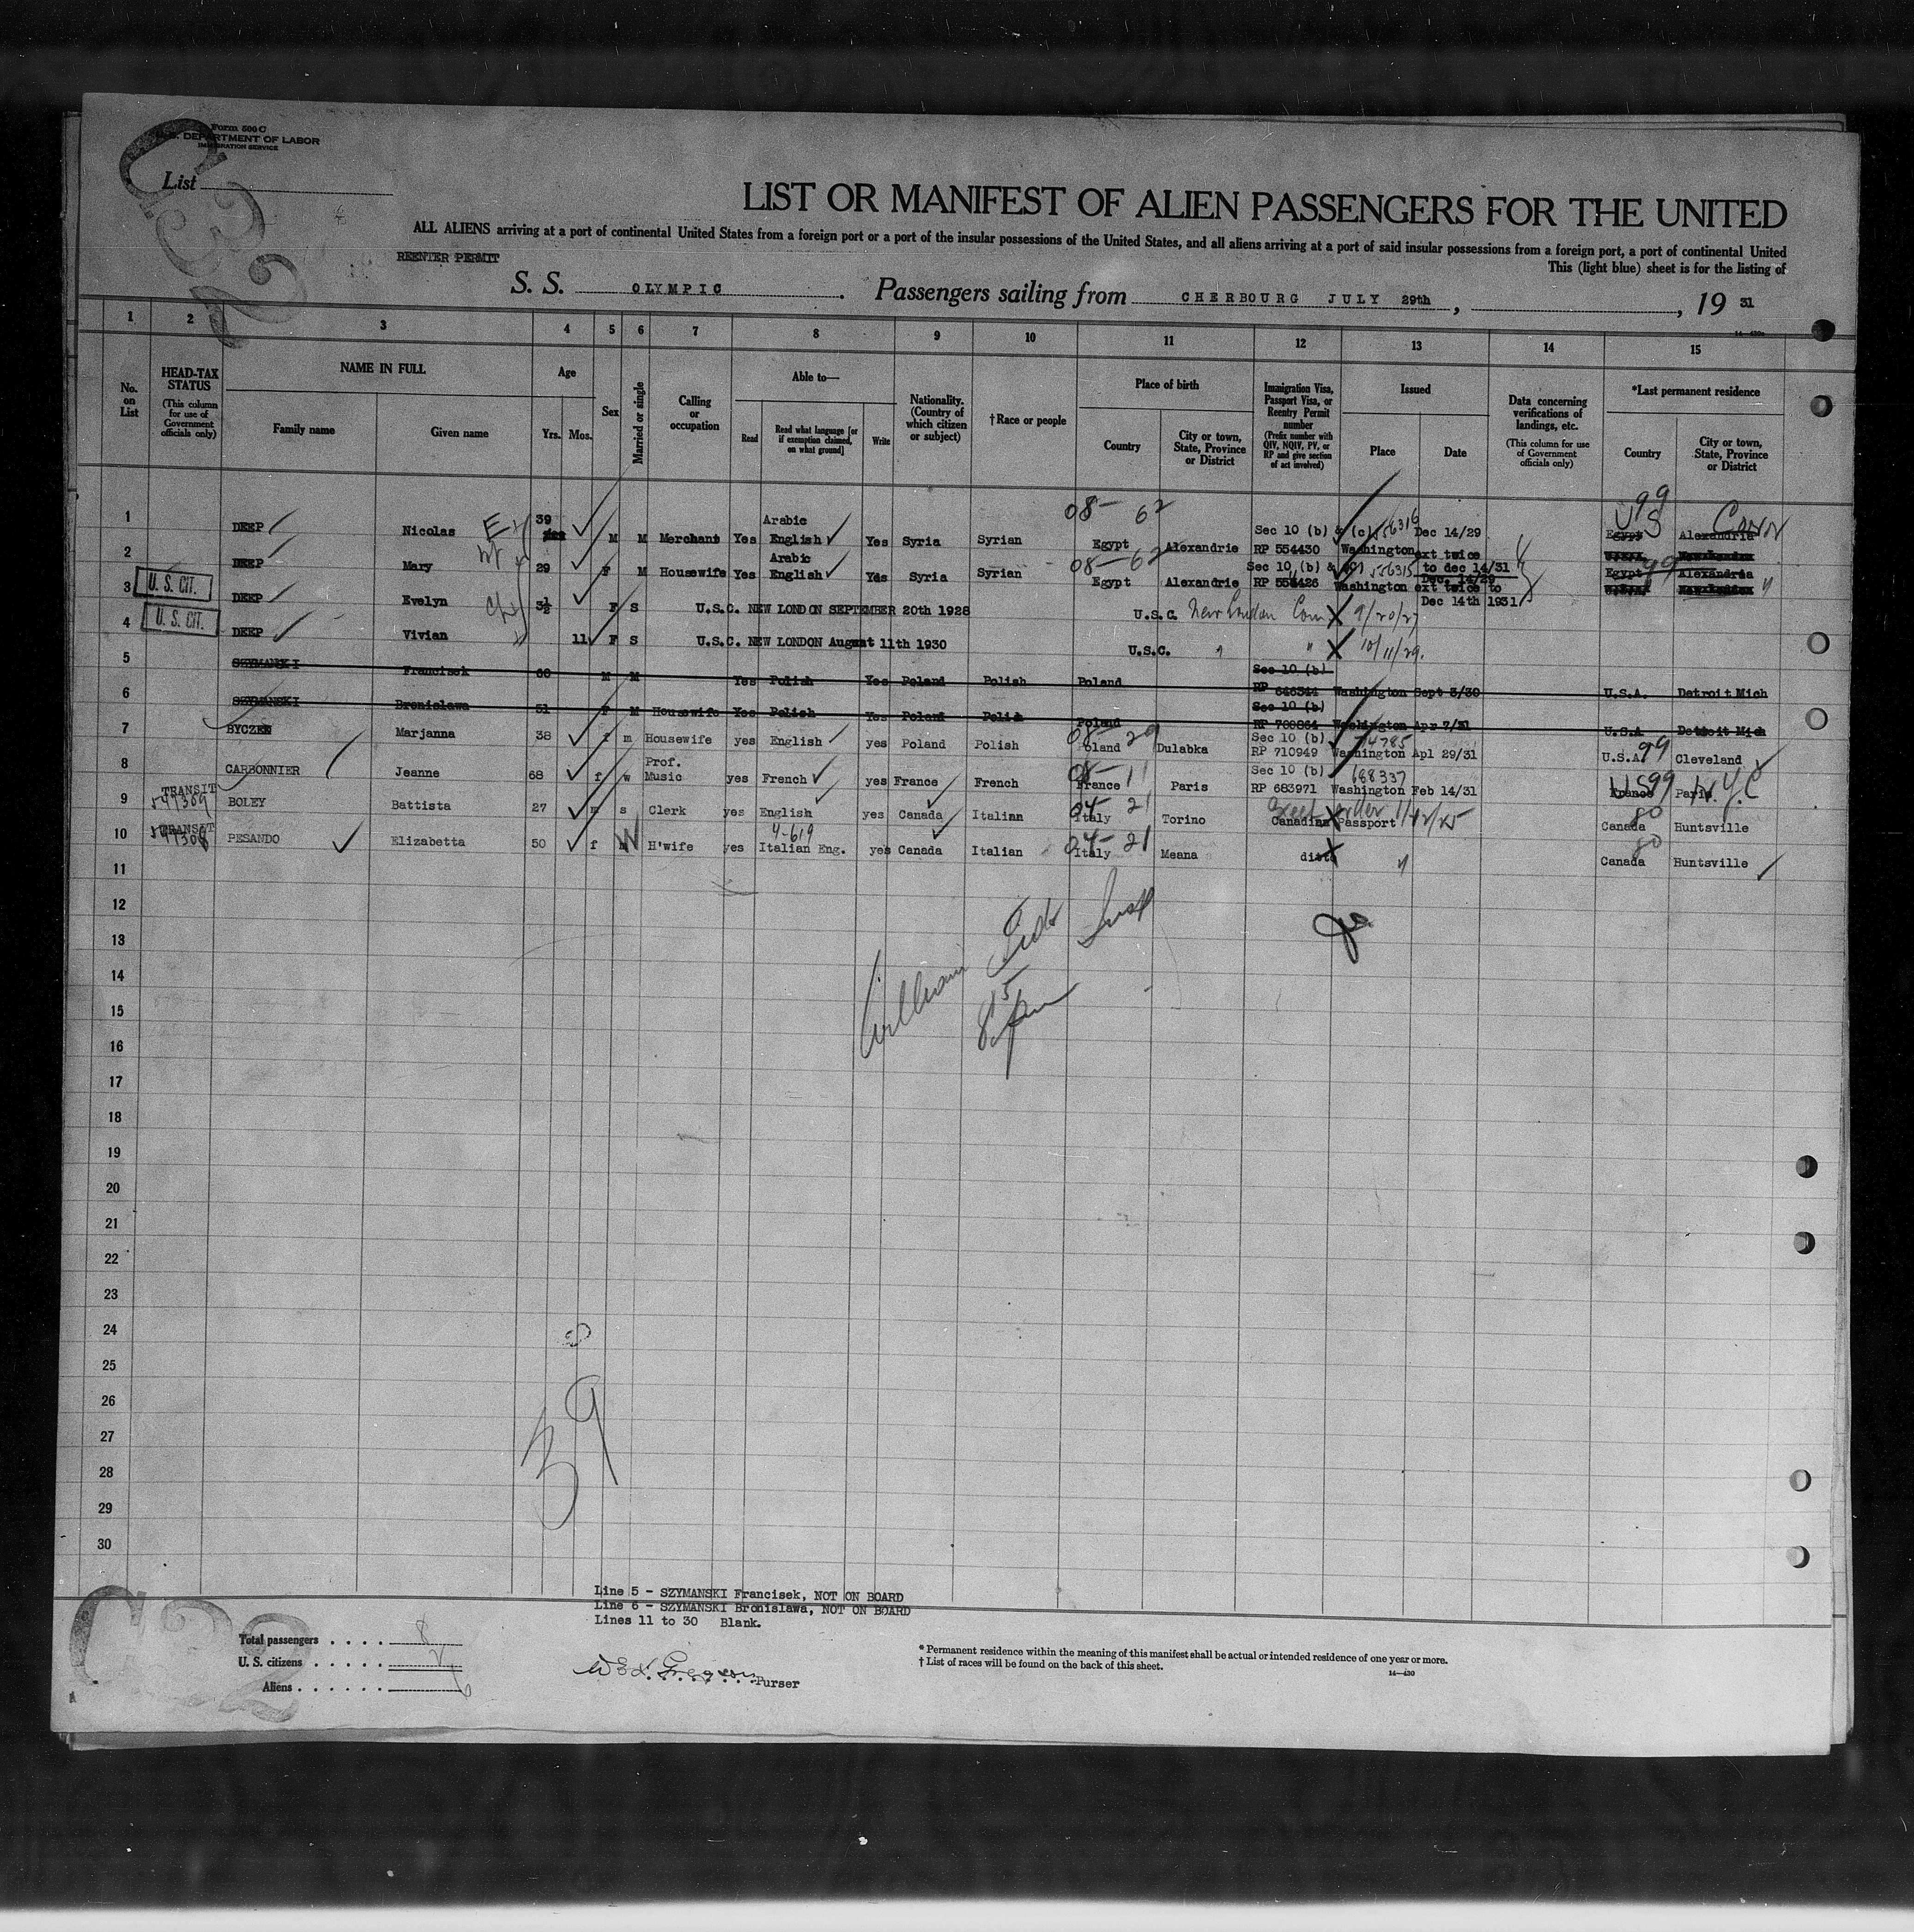 Form 500 C
U.S. DEPARTMENT OF LABOR
IMMIGRATION SERVICE
List
C32
LIST OR MANIFEST OF ALIEN PASSENGERS FOR THE UNITED
ALL ALIENS arriving at a port of continental United States from a foreign port or a port of the insular possessions of the United States, and all aliens arriving at a port of said insular possessions from a foreign port, a port of continental United
This (light blue) sheet is for the listing of
REENTER PERMIT
S. S. OLYMPIC. Passengers sailing from CHERBOURG JULY 29th, , 19 31
1 2 3 4 5 6 7 8 9 10 11 12 13 14 15
No. on List
HEAD-TAX STATUS
(This column for use of Government officials only)
NAME IN FULL
Family name Given name
Age
Yrs. Mos.
Sex
Married or single
Calling or occupation
Able to—
Read Read what language [or if exemption claimed, on what ground] Write
Nationality. (Country of which citizen or subject)
†Race or people
Place of birth
Country City or town, State, Province or District
Immigration Visa, Passport Visa, or Reentry Permit number
(Prefix number with QIV, NQIV, PV, or RP and give section of act involved)
Issued
Place Date
Data concerning verifications of landings, etc.
(This column for use of Government officials only)
*Last permanent residence
Country City or town, State, Province or District
1 DEEP Nicolas 39 M M Merchant Yes Arabic English Yes Syria Syrian 08-62 Egypt Alexandrie Sec 10 (b) & (c) 556316 RP 554430 Washington Dec 14/29 ext twice to dec 14/31 99 US Egypt Alexandria Conn
2 DEEP Mary 29 F M Housewife Yes Arabic English Yes Syria Syrian 08-62 Egypt Alexandrie Sec 10 (b) & (c) 556315 RP 554426 Washington Dec. 14/29 ext twice to Dec 14th 1931 99 Egypt Alexandria "
3 U. S. CIT. DEEP Evelyn 3½ F S U.S.C. NEW LONDON SEPTEMBER 20th 1928 U.S.C. New London Conn X 9/20/27
4 U. S. CIT. DEEP Vivian 11 F S U.S.C. NEW LONDON August 11th 1930 U.S.C. " " X 10/11/29.
5 SZYMANSKI Francisek 60 M M Yes Polish Yes Poland Polish Poland Sec 10 (b) RP 646344 Washington Sept 3/30 U.S.A. Detroit Mich
6 SZYMANSKI Bronislawa 51 F M Housewife Yes Polish Yes Poland Polish Poland Sec 10 (b) RP 709864 Washington Apr 7/31 U.S.A. Detroit Mich
7 BYCZEK Marjanna 38 f m Housewife yes English yes Poland Polish 08-29 Poland Dulabka Sec 10 (b) RP 710949 Washington Apl 29/31 U.S.A. 99 Cleveland
8 CARBONNIER Jeanne 68 f w Prof. Music yes French yes France French 08-11 France Paris Sec 10 (b) 688337 RP 683971 Washington Feb 14/31 US 99 France Paris N.Y.C
9 TRANSIT 547309 BOLEY Battista 27 m s Clerk yes English yes Canada Italian 04-21 Italy Torino Canadian Passport 80 Canada Huntsville
10 TRANSIT PESANDO Elizabetta 50 f W H'wife yes 4-619 Italian Eng. yes Canada Italian 04-21 Italy Meana ditto " 80 Canada Huntsville
11
12
13
14
15
16
17
18
19
20
21
22
23
24
25
26
27
28
29
30
William Insp
39
Line 5 - SZYMANSKI Francisek, NOT ON BOARD
Line 6 - SZYMANSKI Bronislawa, NOT ON BOARD
Lines 11 to 30 Blank.
C32
Total passengers . . . . 8
U. S. citizens . . . . . . 2
Aliens . . . . . . 6
Purser
* Permanent residence within the meaning of this manifest shall be actual or intended residence of one year or more.
† List of races will be found on the back of this sheet.
14—430